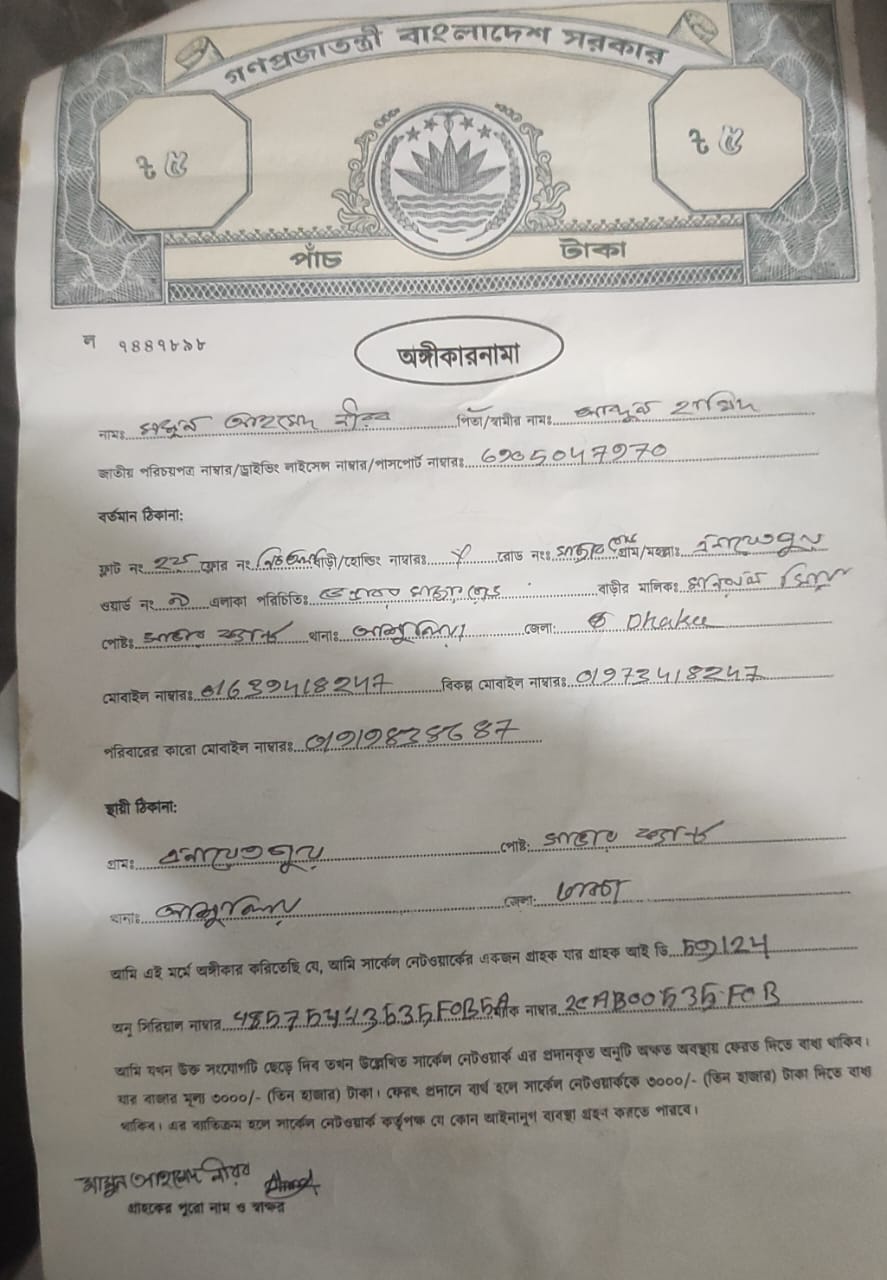 গণপ্রজাতন্ত্রী বাংলাদেশ সরকার
৳ ৫ ৳ ৫
পাঁচ টাকা
ন ৭৪৪৭৮৯৮
অঙ্গীকারনামা
নামঃ আহমেদ নীরব পিতা/স্বামীর নামঃ আব্দুল হাশিম
জাতীয় পরিচয়পত্র নাম্বার/ড্রাইভিং লাইসেন্স নাম্বার/পাসপোর্ট নাম্বারঃ
বর্তমান ঠিকানা:
ফ্লাট নং ফ্লোর নং বাড়ী/হোল্ডিং নাম্বারঃ রোড নংঃ গ্রাম/মহল্লাঃ এনায়েতপুর
ওয়ার্ড নং এলাকা পরিচিতিঃ বাড়ীর মালিকঃ
পোষ্টঃ থানাঃ আশুলিয়া জেলা: Dhaka
মোবাইল নাম্বারঃ 01639418247 বিকল্প মোবাইল নাম্বারঃ 01973418247
পরিবারের কারো মোবাইল নাম্বারঃ
স্থায়ী ঠিকানা:
গ্রামঃ এনায়েতপুর পোষ্ট:
থানাঃ আশুলিয়া জেলা: ঢাকা
আমি এই মর্মে অঙ্গীকার করিতেছি যে, আমি সার্কেল নেটওয়ার্কের একজন গ্রাহক যার গ্রাহক আই ডি
অনু সিরিয়াল নাম্বার 48575443535F0B5A ম্যাক নাম্বার 2CAB00535F0B
আমি যখন উক্ত সংযোগটি ছেড়ে দিব তখন উল্লেখিত সার্কেল নেটওয়ার্ক এর প্রদানকৃত অনুটি অক্ষত অবস্থায় ফেরত দিতে বাধ্য থাকিব।
যার বাজার মূল্য ৩০০০/- (তিন হাজার) টাকা। ফেরৎ প্রদানে ব্যর্থ হলে সার্কেল নেটওয়ার্ককে ৩০০০/- (তিন হাজার) টাকা দিতে বাধ্য
থাকিব। এর ব্যতিক্রম হলে সার্কেল নেটওয়ার্ক কর্তৃপক্ষ যে কোন আইনানুগ ব্যবস্থা গ্রহন করতে পারবে।
আহমেদ নীরব
গ্রাহকের পুরো নাম ও স্বাক্ষর